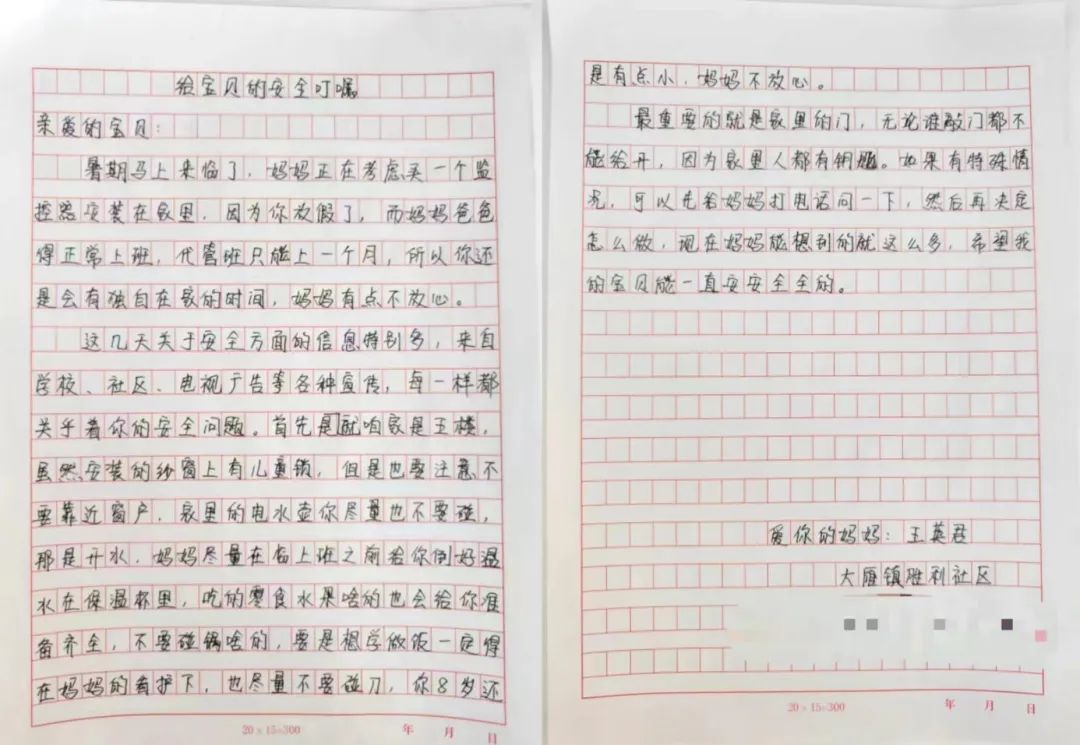 给宝贝的安全叮嘱
亲爱的宝贝:
暑期马上来临了,妈妈正在考虑买一个监
控器安装在家里,因为你放假了,而妈妈爸爸
得正常上班,代管班只能上一个月,所以你还
是会有独自在家的时间,妈妈有点不放心。
这几天关于安全方面的信息特别多,来自
学校、社区、电视广告等各种宣传,每一样都
关乎着你的安全问题。首先是就咱家是五楼,
虽然安装的纱窗上有儿童锁,但是也要注意不
要靠近窗户,家里的电水壶你尽量也不要碰,
那是开水,妈妈尽量在临上班之前给你倒好温
水在保温杯里,吃的零食水果啥的也会给你准
备齐全,不要碰锅啥的,要是想学做饭一定得
在妈妈的看护下,也尽量不要碰刀,你8岁还
20×15=300
年 月 日
是有点小,妈妈不放心。
最重要的就是家里的门,无论谁敲门都不
能给开,因为家里人都有钥匙。如果有特殊情
况,可以先给妈妈打电话问一下,然后再决定
怎么做,现在妈妈能想到的就这么多,希望我
的宝贝能一直安安全全的。
爱你的妈妈:王英君
大雁镇胜利社区
20×15=300
年 月 日